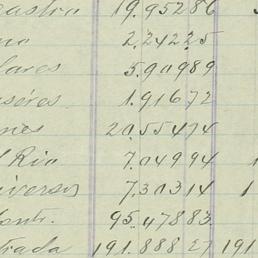 castro 19.952 86
no 2.242 25
lares 5.909 89
seres 1.916 72
nes 20.554 74
l Rio 7.049 94 1
iversos 7.303 14 1
ont. 95.478 83
trada 191.888 27 191